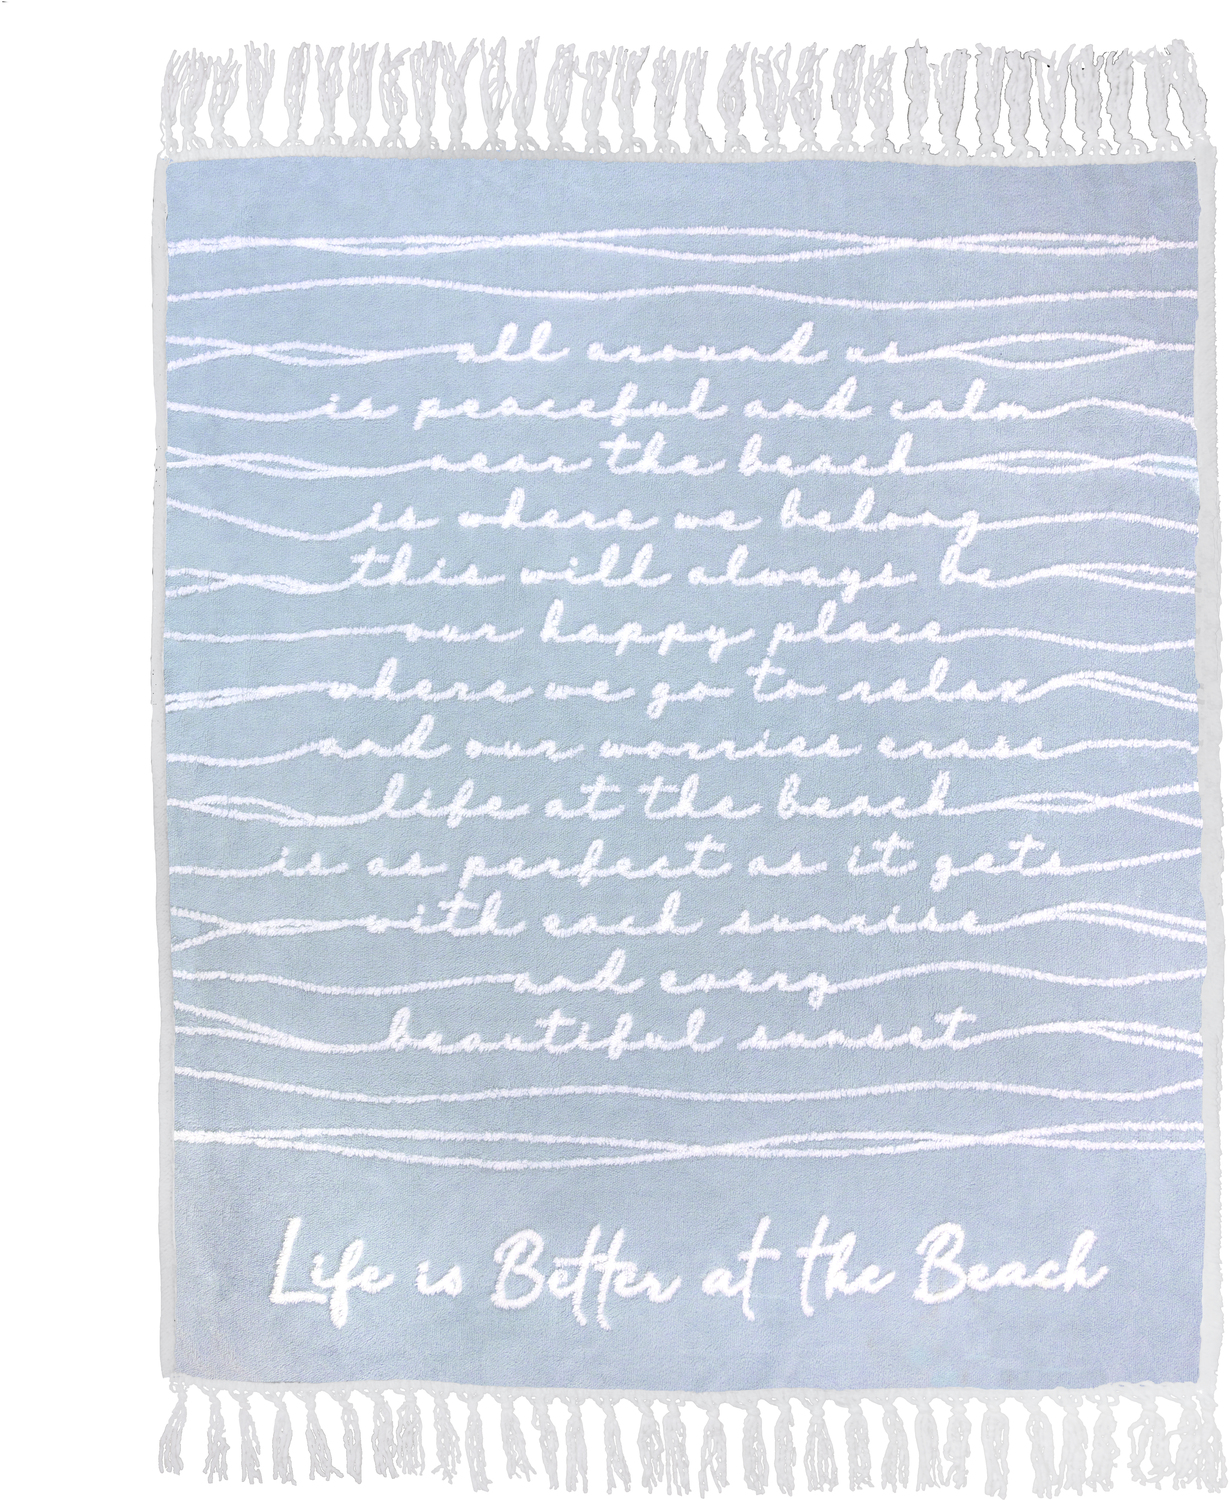 all around us
is peaceful and calm
near the beach
is where we belong
this will always be
our happy place
where we go to relax
and our worries erase
life at the beach
is as perfect as it gets
with each sunrise
and every
beautiful sunset
Life is Better at the Beach